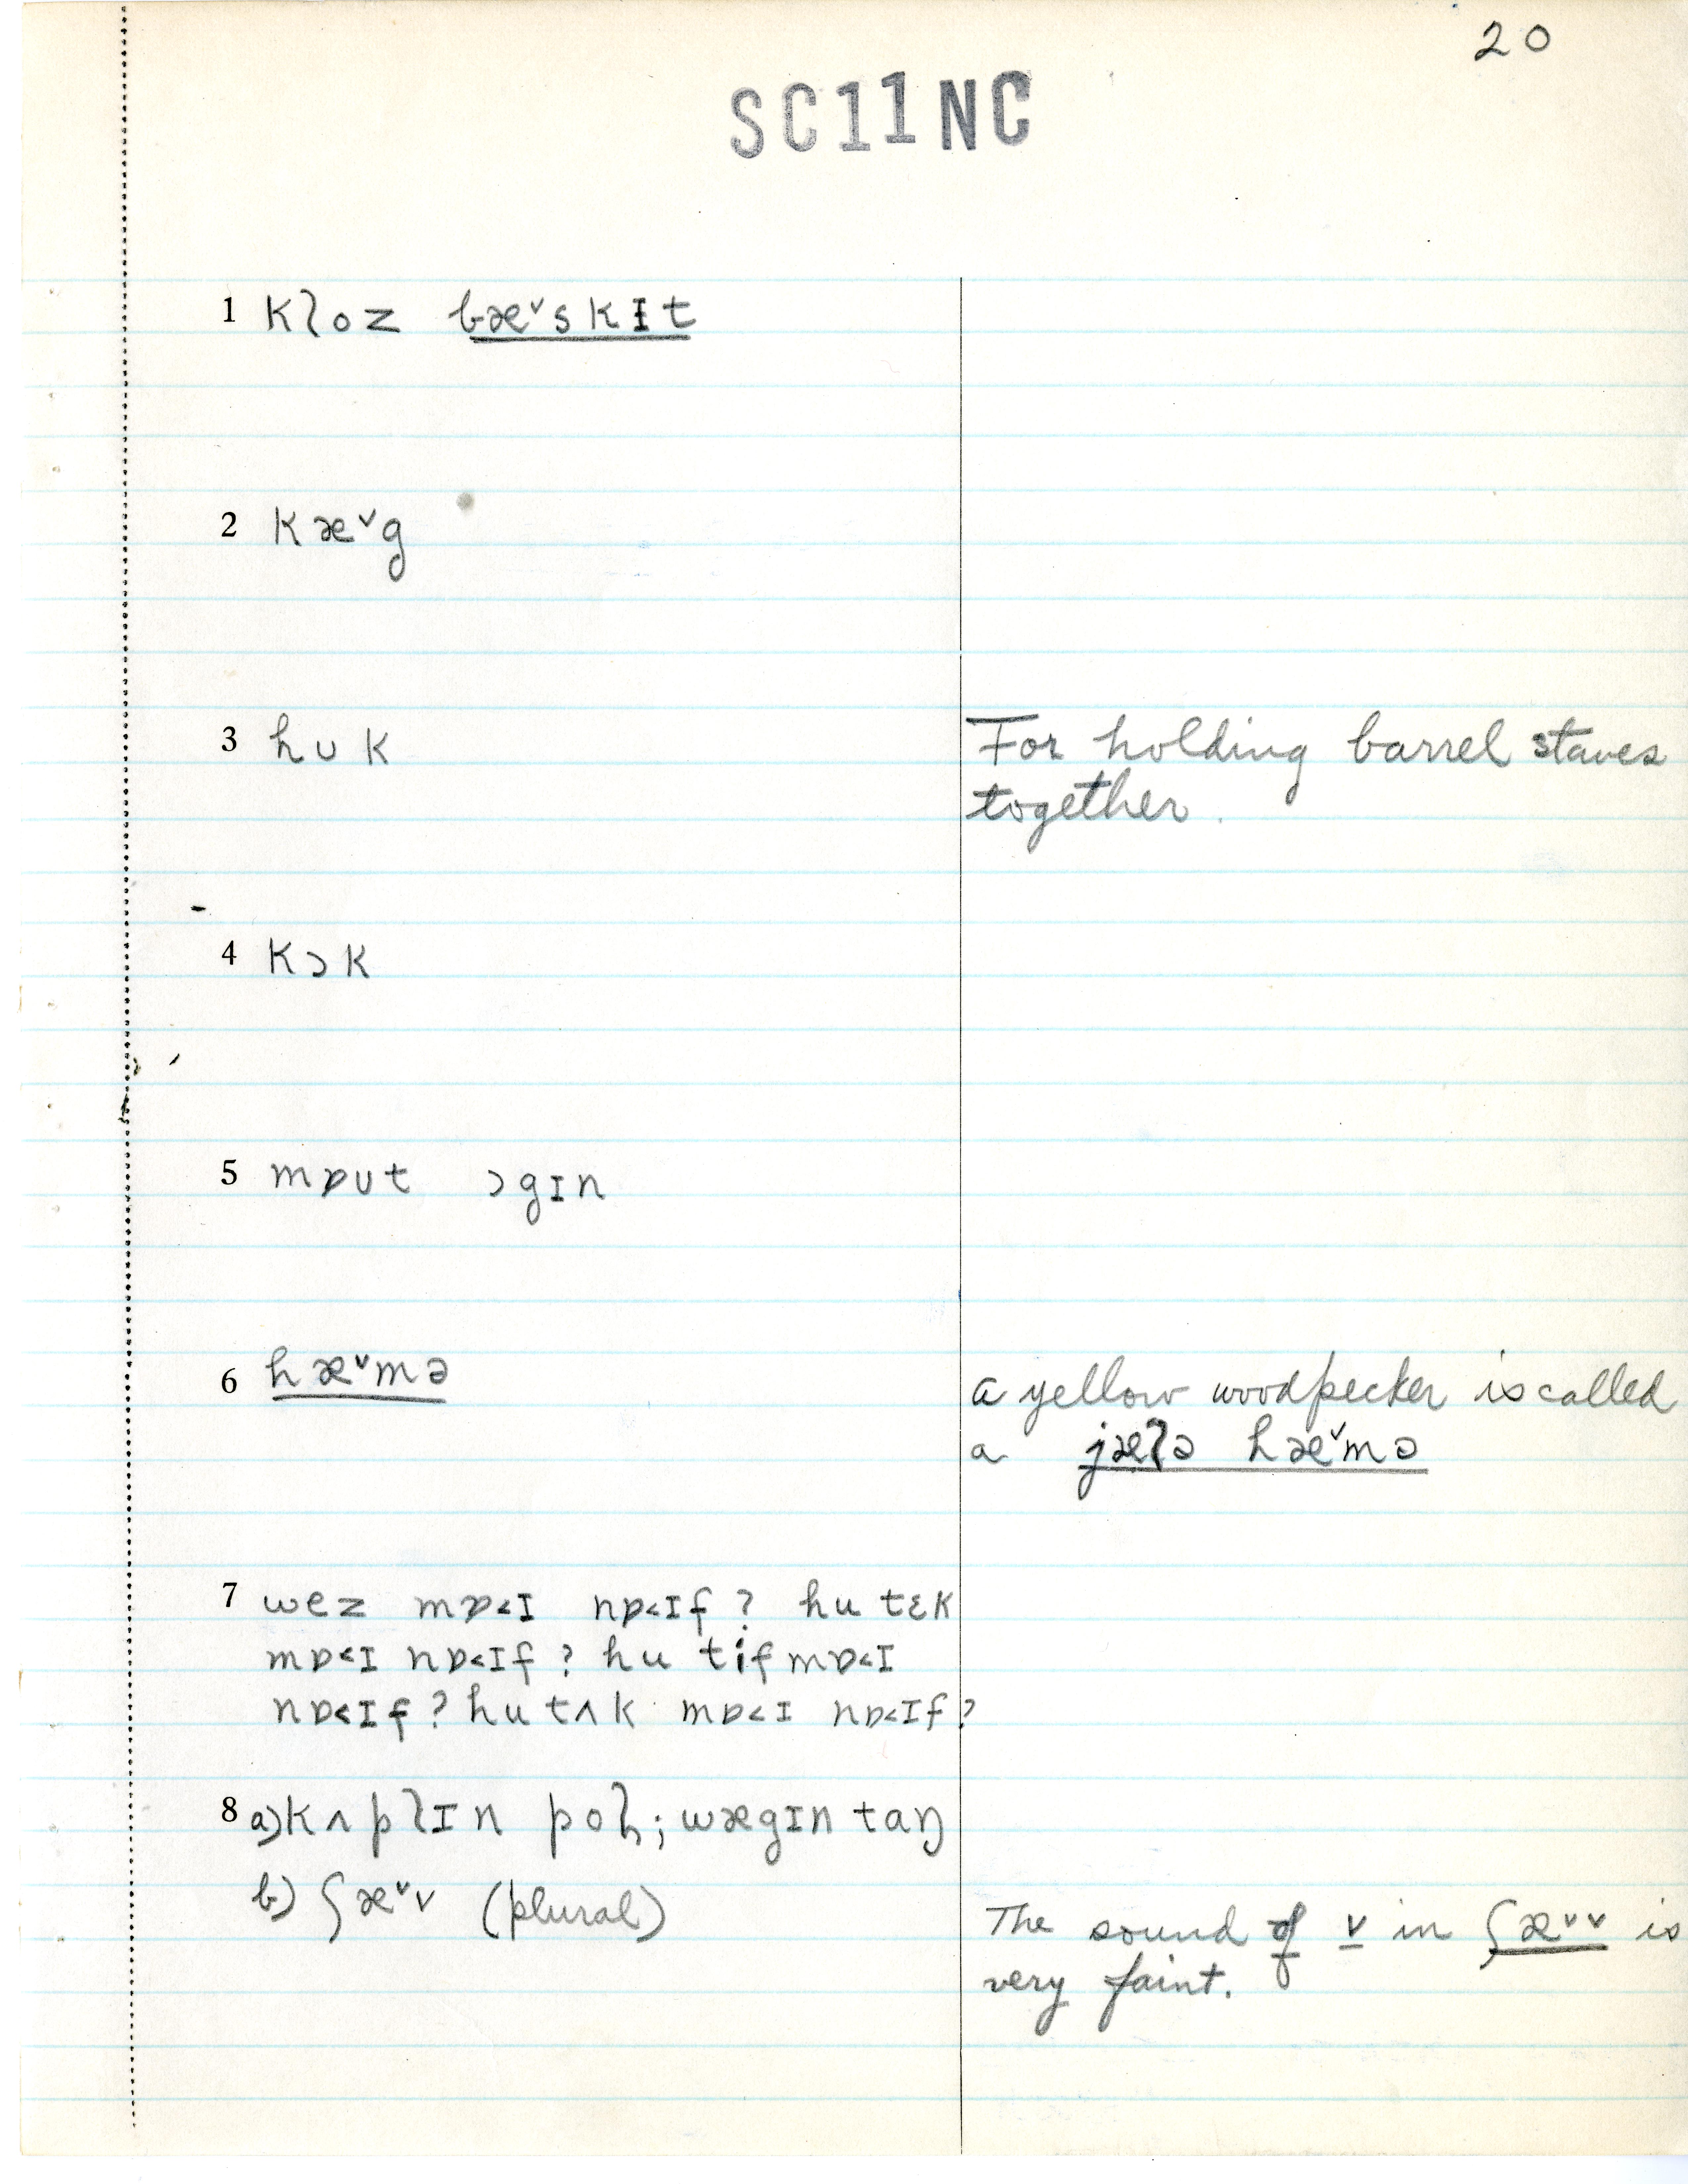 20
SC11NC
1 kloz bæ˅skɪt
2 kæ˅g
3 hʊk For holding barrel staves
together.
4 kɔk
5 mɒʊt ɔgɪn
6 hæ˅mə a yellow woodpecker is called
a jælə hæ˅mə
7 wez mɒ˂ɪ nɒ˂ɪf? hu tɛk
mɒ˂ɪ nɒ˂ɪf? hu tif mɒ˂ɪ
nɒ˂ɪf? hu tʌk mɒ˂ɪ nɒ˂ɪf?
8 a) kʌplɪn pol; wægɪn taŋ
b) ʃæ˅v (plural) The sound of v in ʃæ˅v is
very faint.